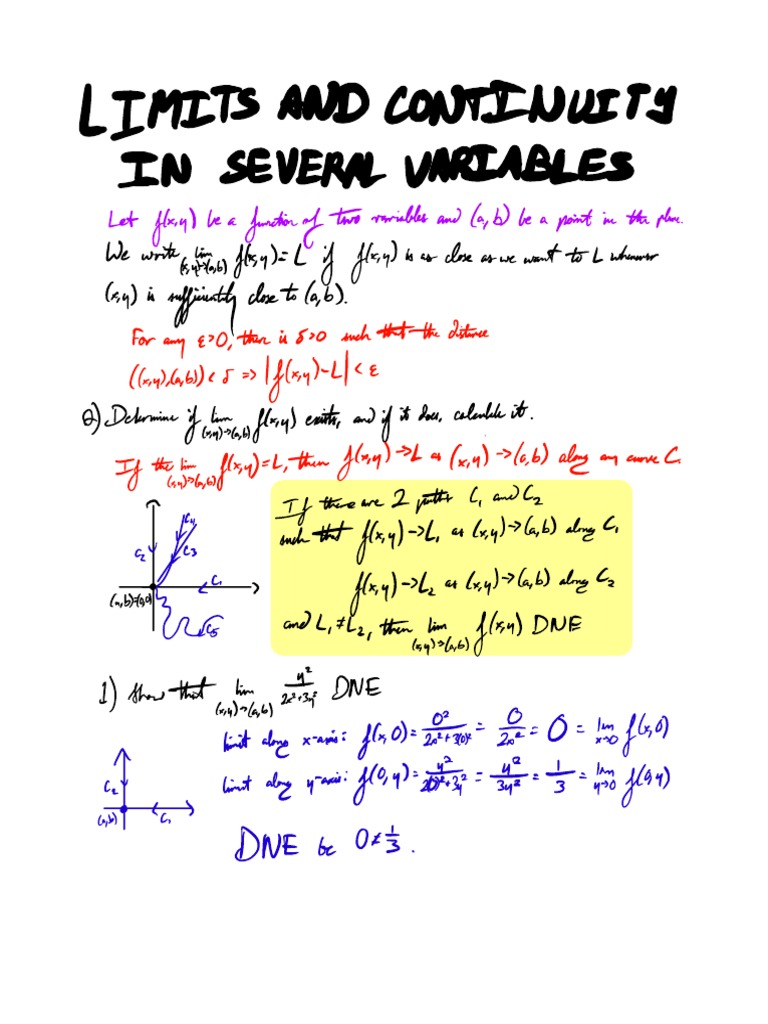 LIMITS AND CONTINUITY
IN SEVERAL VARIABLES
Let f(x,y) be a function of two variables and (a,b) be a point in the plane.
We write lim (x,y)→(a,b) f(x,y)=L if f(x,y) is as close as we want to L whenever
(x,y) is sufficiently close to (a,b).
For any ε>0, there is δ>0 such that the distance
((x,y),(a,b))<δ => |f(x,y)-L|<ε
Q) Determine if lim (x,y)→(a,b) f(x,y) exists, and if it does, calculate it.
If the lim (x,y)→(a,b) f(x,y)=L, then f(x,y)→L as (x,y)→(a,b) along any curve C.
If there are 2 paths C₁ and C₂
such that f(x,y)→L₁ as (x,y)→(a,b) along C₁
f(x,y)→L₂ as (x,y)→(a,b) along C₂
and L₁≠L₂, then lim (x,y)→(a,b) f(x,y) DNE
C₄
C₂
C₃
C₁
(a,b)=(0,0)
C₅
1) Show that lim (x,y)→(a,b) y²/(2x²+3y²) DNE
limit along x-axis: f(x,0)= 0²/(2x²+3(0)²) = 0/2x² = 0 = lim x→0 f(x,0)
limit along y-axis: f(0,y)= y²/(2(0)²+3y²) = y²/3y² = 1/3 = lim y→0 f(0,y)
C₂
(a,b)
C₁
DNE bc 0≠1/3.